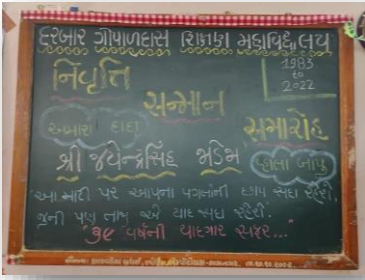 દરબાર ગોપાળદાસ શિક્ષણ મહાવિદ્યાલય
નિવૃત્તિ
1983
to
2022
સન્માન
સમારોહ
અમારા દાદા
શ્રી જયેન્દ્રસિંહ
વ્હાલા બાપુ
આ માટી પર આપના પગલાંની છાપ સદા રહેશે,
પણ નામ એ યાદ સદા રહેશે.
"૩૯ વર્ષની યાદગાર સફર..."